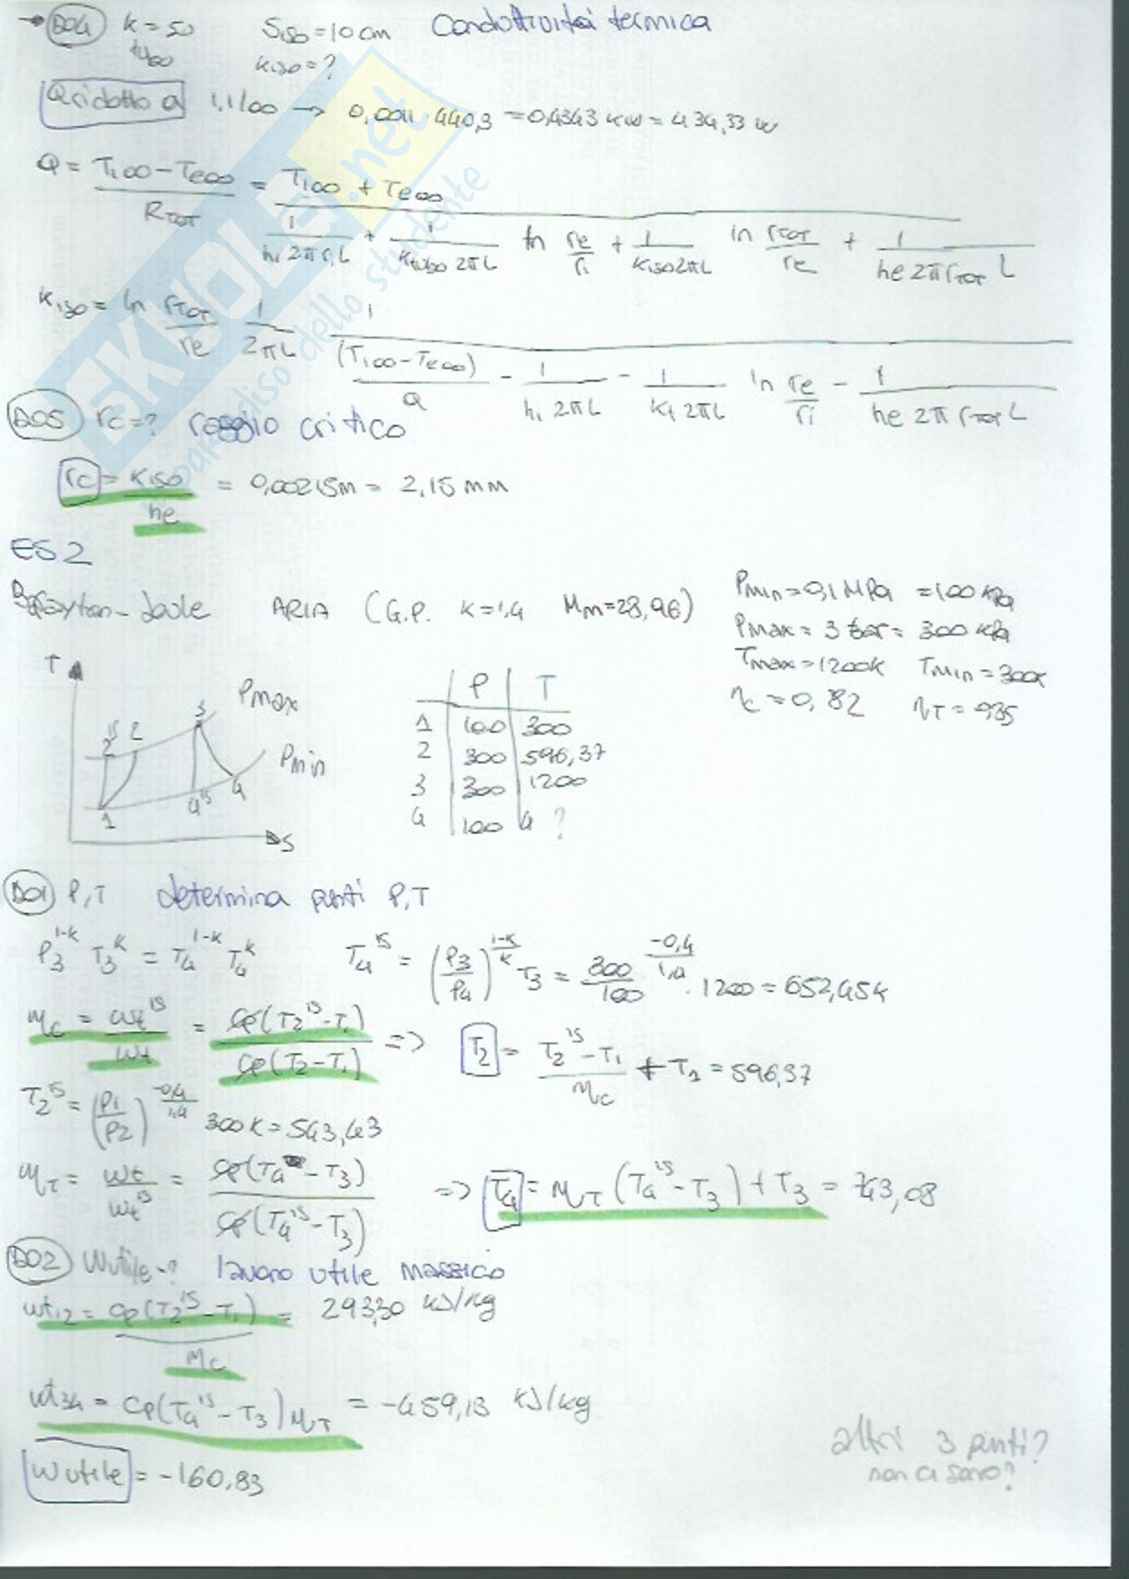 → D04 K = 50 Siso = 10 cm Conduttività termica
tubo Kiso = ?
Q ridotto a 1,1/00 → 0,0011 · 440,3 = 0,4343 kW = 434,33 W
Q = Ti∞ - Te∞ / RTOT = Ti∞ + Te∞ / 1/hi 2π ri L + 1/Ktubo 2πL ln re/ri + 1/Kiso 2πL ln rTOT/re + 1/he 2π rTOT L
Kiso = ln rTOT/re 1/2πL 1 / (Ti∞ - Te∞)/Q - 1/hi 2πL - 1/Kt 2πL ln re/ri - 1/he 2π rTOT L
D05 rc = ? raggio critico
rc = Kiso/he = 0,00215 m = 2,15 mm
ES 2
Brayton-Joule ARIA (G.P. K = 1,4 Mm = 28,96)
Pmin = 0,1 MPa = 100 kPa
Pmax = 3 bar = 300 kPa
Tmax = 1200K Tmin = 300K
ηc = 0,82 ηT = 0,85
T Pmax Pmin S
1 2is 2 3 4is 4
P T
1 100 300
2 300 596,37
3 300 1200
4 100 4 ?
D01 P,T determina punti P,T
P3^1-K T3^K = T4^1-K T4^K T4^is = (P3/P4)^1-K/K T3 = 300/100^-0,4/1,4 · 1200 = 652,454
ηc = wt^is/wt = cp(T2^is - T1)/cp(T2 - T1) => T2 = T2^is - T1/ηc + T1 = 596,37
T2^is = (P1/P2)^-0,4/1,4 300K = 543,43
ηT = wt/wt^is = cp(T4 - T3)/cp(T4^is - T3) => T4 = ηT (T4^is - T3) + T3 = 743,08
D02 Wutile = ? lavoro utile massico
wt12 = cp(T2^is - T1)/ηc = 293,30 kJ/kg
wt34 = cp(T4^is - T3) ηT = -459,13 kJ/kg
Wutile = -160,83
altri 3 punti?
non ci sono?
SKUOLA.net
paradiso dello studente